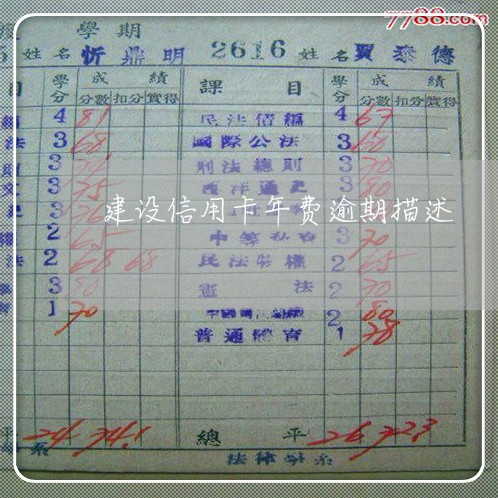 7788.com
學期
姓名 忻鼎明 2616 姓名 賈泰德
目 學分 成績 課目 學分 成績
分數 扣分 實得 分數 扣分 實得
4 81 民法債編 4 67
法 3 68 國際公法 3 60
3 刑法總則 3 70
3 75 西洋通史 3 80
建设信用卡年费逾期描述
2 65 3 70
法 2 68 68 民法物權 2 65
3 80 憲法 2 70
1 70 2 80
普通體育 1 78
平 24 74.1 總平 26 72.3
系 法律學系